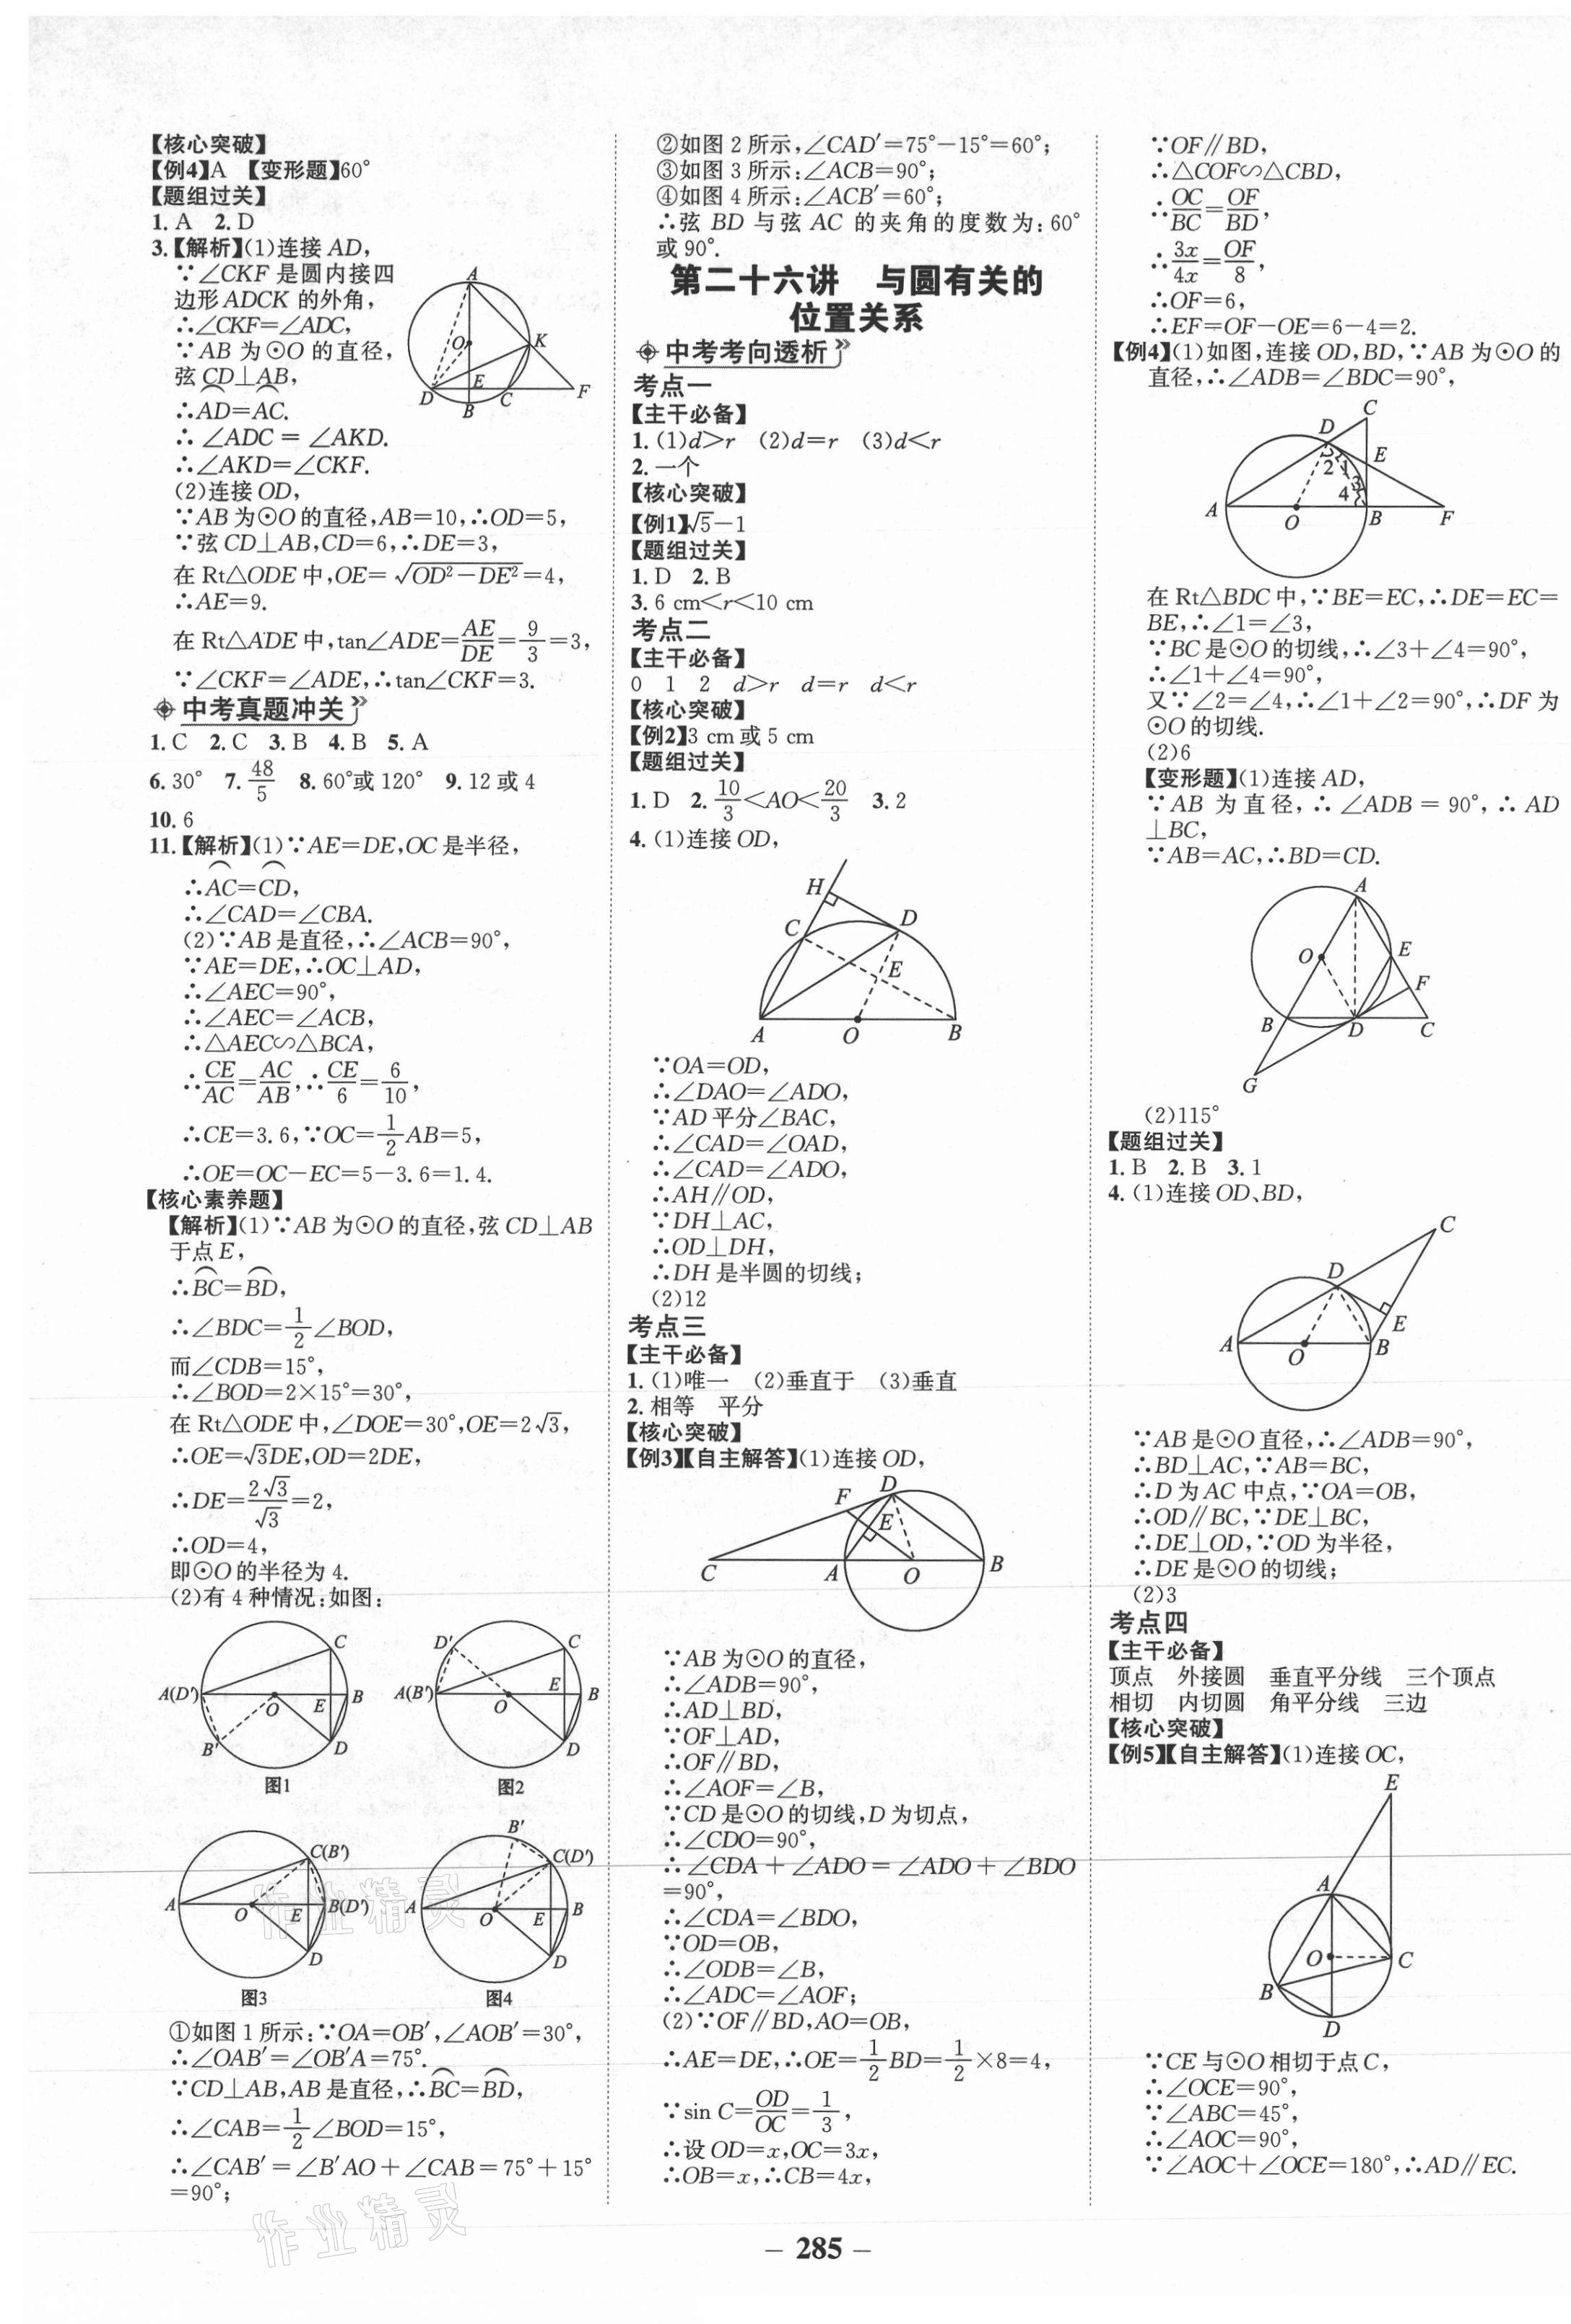 【核心突破】
【例4】A 【变形题】60°
【题组过关】
1. A 2. D
3.【解析】(1)连接 AD,
∵∠CKF 是圆内接四
边形 ADCK 的外角,
∴∠CKF=∠ADC,
∵AB 为⊙O 的直径,
弦 CD⊥AB,
∴A͡D=A͡C.
∴∠ADC=∠AKD.
∴∠AKD=∠CKF.
A
O
K
E
D
B
C
F
(2)连接 OD,
∵AB 为⊙O 的直径,AB=10,∴OD=5,
∵弦 CD⊥AB,CD=6,∴DE=3,
在 Rt△ODE 中,OE=√(OD²-DE²)=4,
∴AE=9.
在 Rt△ADE 中,tan∠ADE=AE/DE=9/3=3,
∵∠CKF=∠ADE,∴tan∠CKF=3.
中考真题冲关
1. C 2. C 3. B 4. B 5. A
6. 30° 7. 48/5 8. 60°或 120° 9. 12 或 4
10. 6
11.【解析】(1)∵AE=DE,OC 是半径,
∴A͡C=C͡D,
∴∠CAD=∠CBA.
(2)∵AB 是直径,∴∠ACB=90°,
∵AE=DE,∴OC⊥AD,
∴∠AEC=90°,
∴∠AEC=∠ACB,
∴△AEC∽△BCA,
∴CE/AC=AC/AB,∴CE/6=6/10,
∴CE=3.6,∵OC=1/2AB=5,
∴OE=OC-EC=5-3.6=1.4.
【核心素养题】
【解析】(1)∵AB 为⊙O 的直径,弦 CD⊥AB
于点 E,
∴B͡C=B͡D,
∴∠BDC=1/2∠BOD,
而∠CDB=15°,
∴∠BOD=2×15°=30°,
在 Rt△ODE 中,∠DOE=30°,OE=2√3,
∴OE=√3DE,OD=2DE,
∴DE=2√3/√3=2,
∴OD=4,
即⊙O 的半径为 4.
(2)有 4 种情况:如图:
C
A(D′)
O
E
B
B′
D
图1
D′
C
A(B′)
E
B
O
D
图2
C(B′)
A
O
E
B(D′)
D
图3
B′
C(D′)
A
O
E
B
D
图4
①如图 1 所示:∵OA=OB′,∠AOB′=30°,
∴∠OAB′=∠OB′A=75°.
∵CD⊥AB,AB 是直径,∴B͡C=B͡D,
∴∠CAB=1/2∠BOD=15°,
∴∠CAB′=∠B′AO+∠CAB=75°+15°
=90°;
②如图 2 所示,∠CAD′=75°-15°=60°;
③如图 3 所示:∠ACB=90°;
④如图 4 所示:∠ACB′=60°;
∴弦 BD 与弦 AC 的夹角的度数为:60°
或 90°.
第二十六讲 与圆有关的
位置关系
中考考向透析
考点一
【主干必备】
1. (1)d>r (2)d=r (3)d<r
2. 一个
【核心突破】
【例1】√5-1
【题组过关】
1. D 2. B
3. 6 cm<r<10 cm
考点二
【主干必备】
0 1 2 d>r d=r d<r
【核心突破】
【例2】3 cm 或 5 cm
【题组过关】
1. D 2. 10/3<AO<20/3 3. 2
4. (1)连接 OD,
H
C
D
E
A
O
B
∵OA=OD,
∴∠DAO=∠ADO,
∵AD 平分∠BAC,
∴∠CAD=∠OAD,
∴∠CAD=∠ADO,
∴AH∥OD,
∵DH⊥AC,
∴OD⊥DH,
∴DH 是半圆的切线;
(2)12
考点三
【主干必备】
1. (1)唯一 (2)垂直于 (3)垂直
2. 相等 平分
【核心突破】
【例3】【自主解答】(1)连接 OD,
D
F
E
C
A
O
B
∵AB 为⊙O 的直径,
∴∠ADB=90°,
∴AD⊥BD,
∵OF⊥AD,
∴OF∥BD,
∴∠AOF=∠B,
∵CD 是⊙O 的切线,D 为切点,
∴∠CDO=90°,
∴∠CDA+∠ADO=∠ADO+∠BDO
=90°,
∴∠CDA=∠BDO,
∵OD=OB,
∴∠ODB=∠B,
∴∠ADC=∠AOF;
(2)∵OF∥BD,AO=OB,
∴AE=DE,∴OE=1/2BD=1/2×8=4,
∵sin C=OD/OC=1/3,
∴设 OD=x,OC=3x,
∴OB=x,∴CB=4x,
∵OF∥BD,
∴△COF∽△CBD,
∴OC/BC=OF/BD,
∴3x/4x=OF/8,
∴OF=6,
∴EF=OF-OE=6-4=2.
【例4】(1)如图,连接 OD,BD,∵AB 为⊙O 的
直径,∴∠ADB=∠BDC=90°,
C
D
E
2
1
3
4
A
O
B
F
在 Rt△BDC 中,∵BE=EC,∴DE=EC=
BE,∴∠1=∠3,
∵BC 是⊙O 的切线,∴∠3+∠4=90°,
∴∠1+∠4=90°,
又∵∠2=∠4,∴∠1+∠2=90°,∴DF 为
⊙O 的切线.
(2)6
【变形题】(1)连接 AD,
∵AB 为直径,∴∠ADB=90°,∴AD
⊥BC,
∵AB=AC,∴BD=CD.
A
O
E
F
B
D
C
G
(2)115°
【题组过关】
1. B 2. B 3. 1
4. (1)连接 OD、BD,
C
D
E
A
O
B
∵AB 是⊙O 直径,∴∠ADB=90°,
∴BD⊥AC,∵AB=BC,
∴D 为 AC 中点,∵OA=OB,
∴OD∥BC,∵DE⊥BC,
∴DE⊥OD,∵OD 为半径,
∴DE 是⊙O 的切线;
(2)3
考点四
【主干必备】
顶点 外接圆 垂直平分线 三个顶点
相切 内切圆 角平分线 三边
【核心突破】
【例5】【自主解答】(1)连接 OC,
E
A
O
C
B
D
∵CE 与⊙O 相切于点 C,
∴∠OCE=90°,
∵∠ABC=45°,
∴∠AOC=90°,
∵∠AOC+∠OCE=180°,∴AD∥EC.
作业精灵
作业精灵
– 285 –